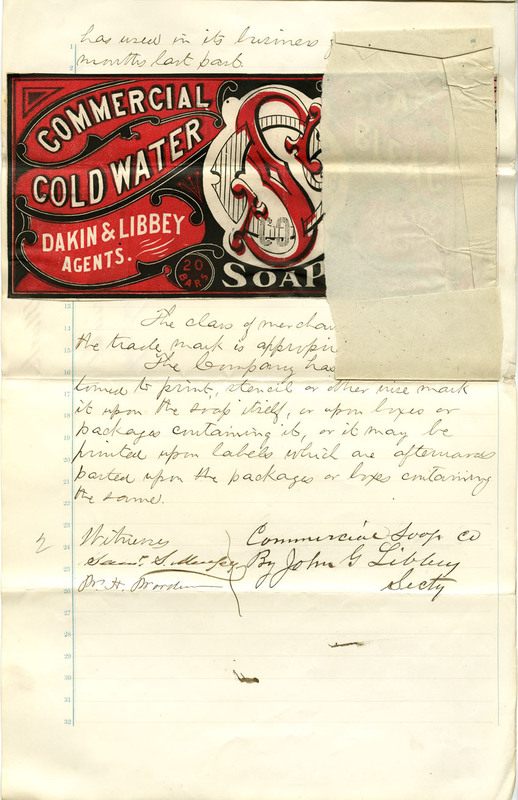 has used in its business
months last past.
COMMERCIAL
COLD WATER
DAKIN & LIBBEY
AGENTS.
20
BARS
SOAP
The class of merchan
the trade mark is appropri
The Company has
tomed to print, stencil or other wise mark
it upon the soap itself, or upon boxes or
packages containing it, or it may be
printed upon labels which are afterwards
pasted upon the packages or boxes containing
the same.
2 Witnesses Commercial Soap Co
Saml. S. By John G Libbey
Wm. H. Secty